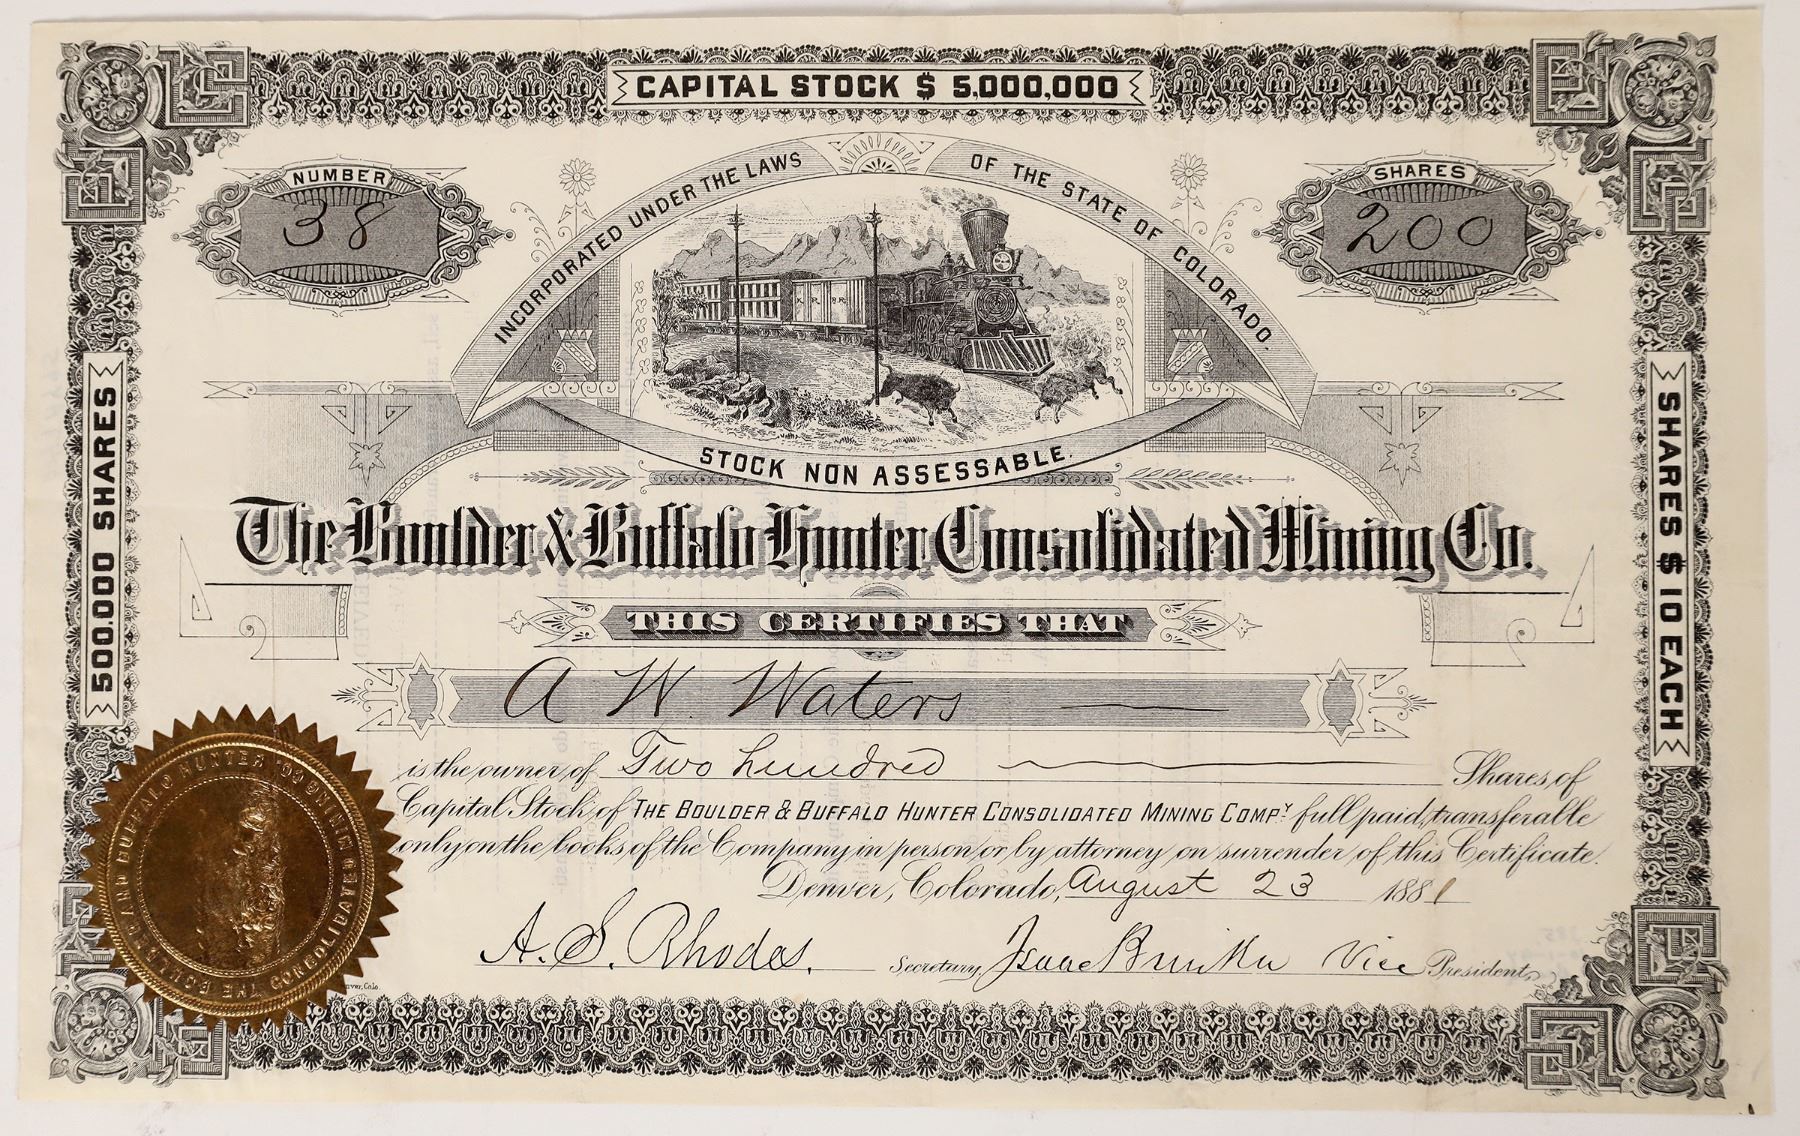 CAPITAL STOCK $ 5,000,000
NUMBER
38
SHARES
200
INCORPORATED UNDER THE LAWS OF THE STATE OF COLORADO.
K. P. R.R.
STOCK NON ASSESSABLE.
500,000 SHARES
SHARES $ 10 EACH
The Boulder & Buffalo Hunter Consolidated Mining Co.
THIS CERTIFIES THAT
A W. Waters
is the owner of Two hundred Shares of
Capital Stock of THE BOULDER & BUFFALO HUNTER CONSOLIDATED MINING COMPY full paid, transferable
only on the books of the Company in person or by attorney on surrender of this Certificate.
Denver, Colorado, August 23 1881
A. S. Rhodes. Secretary, Isaac Vice President,
THE BOULDER AND BUFFALO HUNTER CONSOLIDATED MINING CO.
nver, Colo.